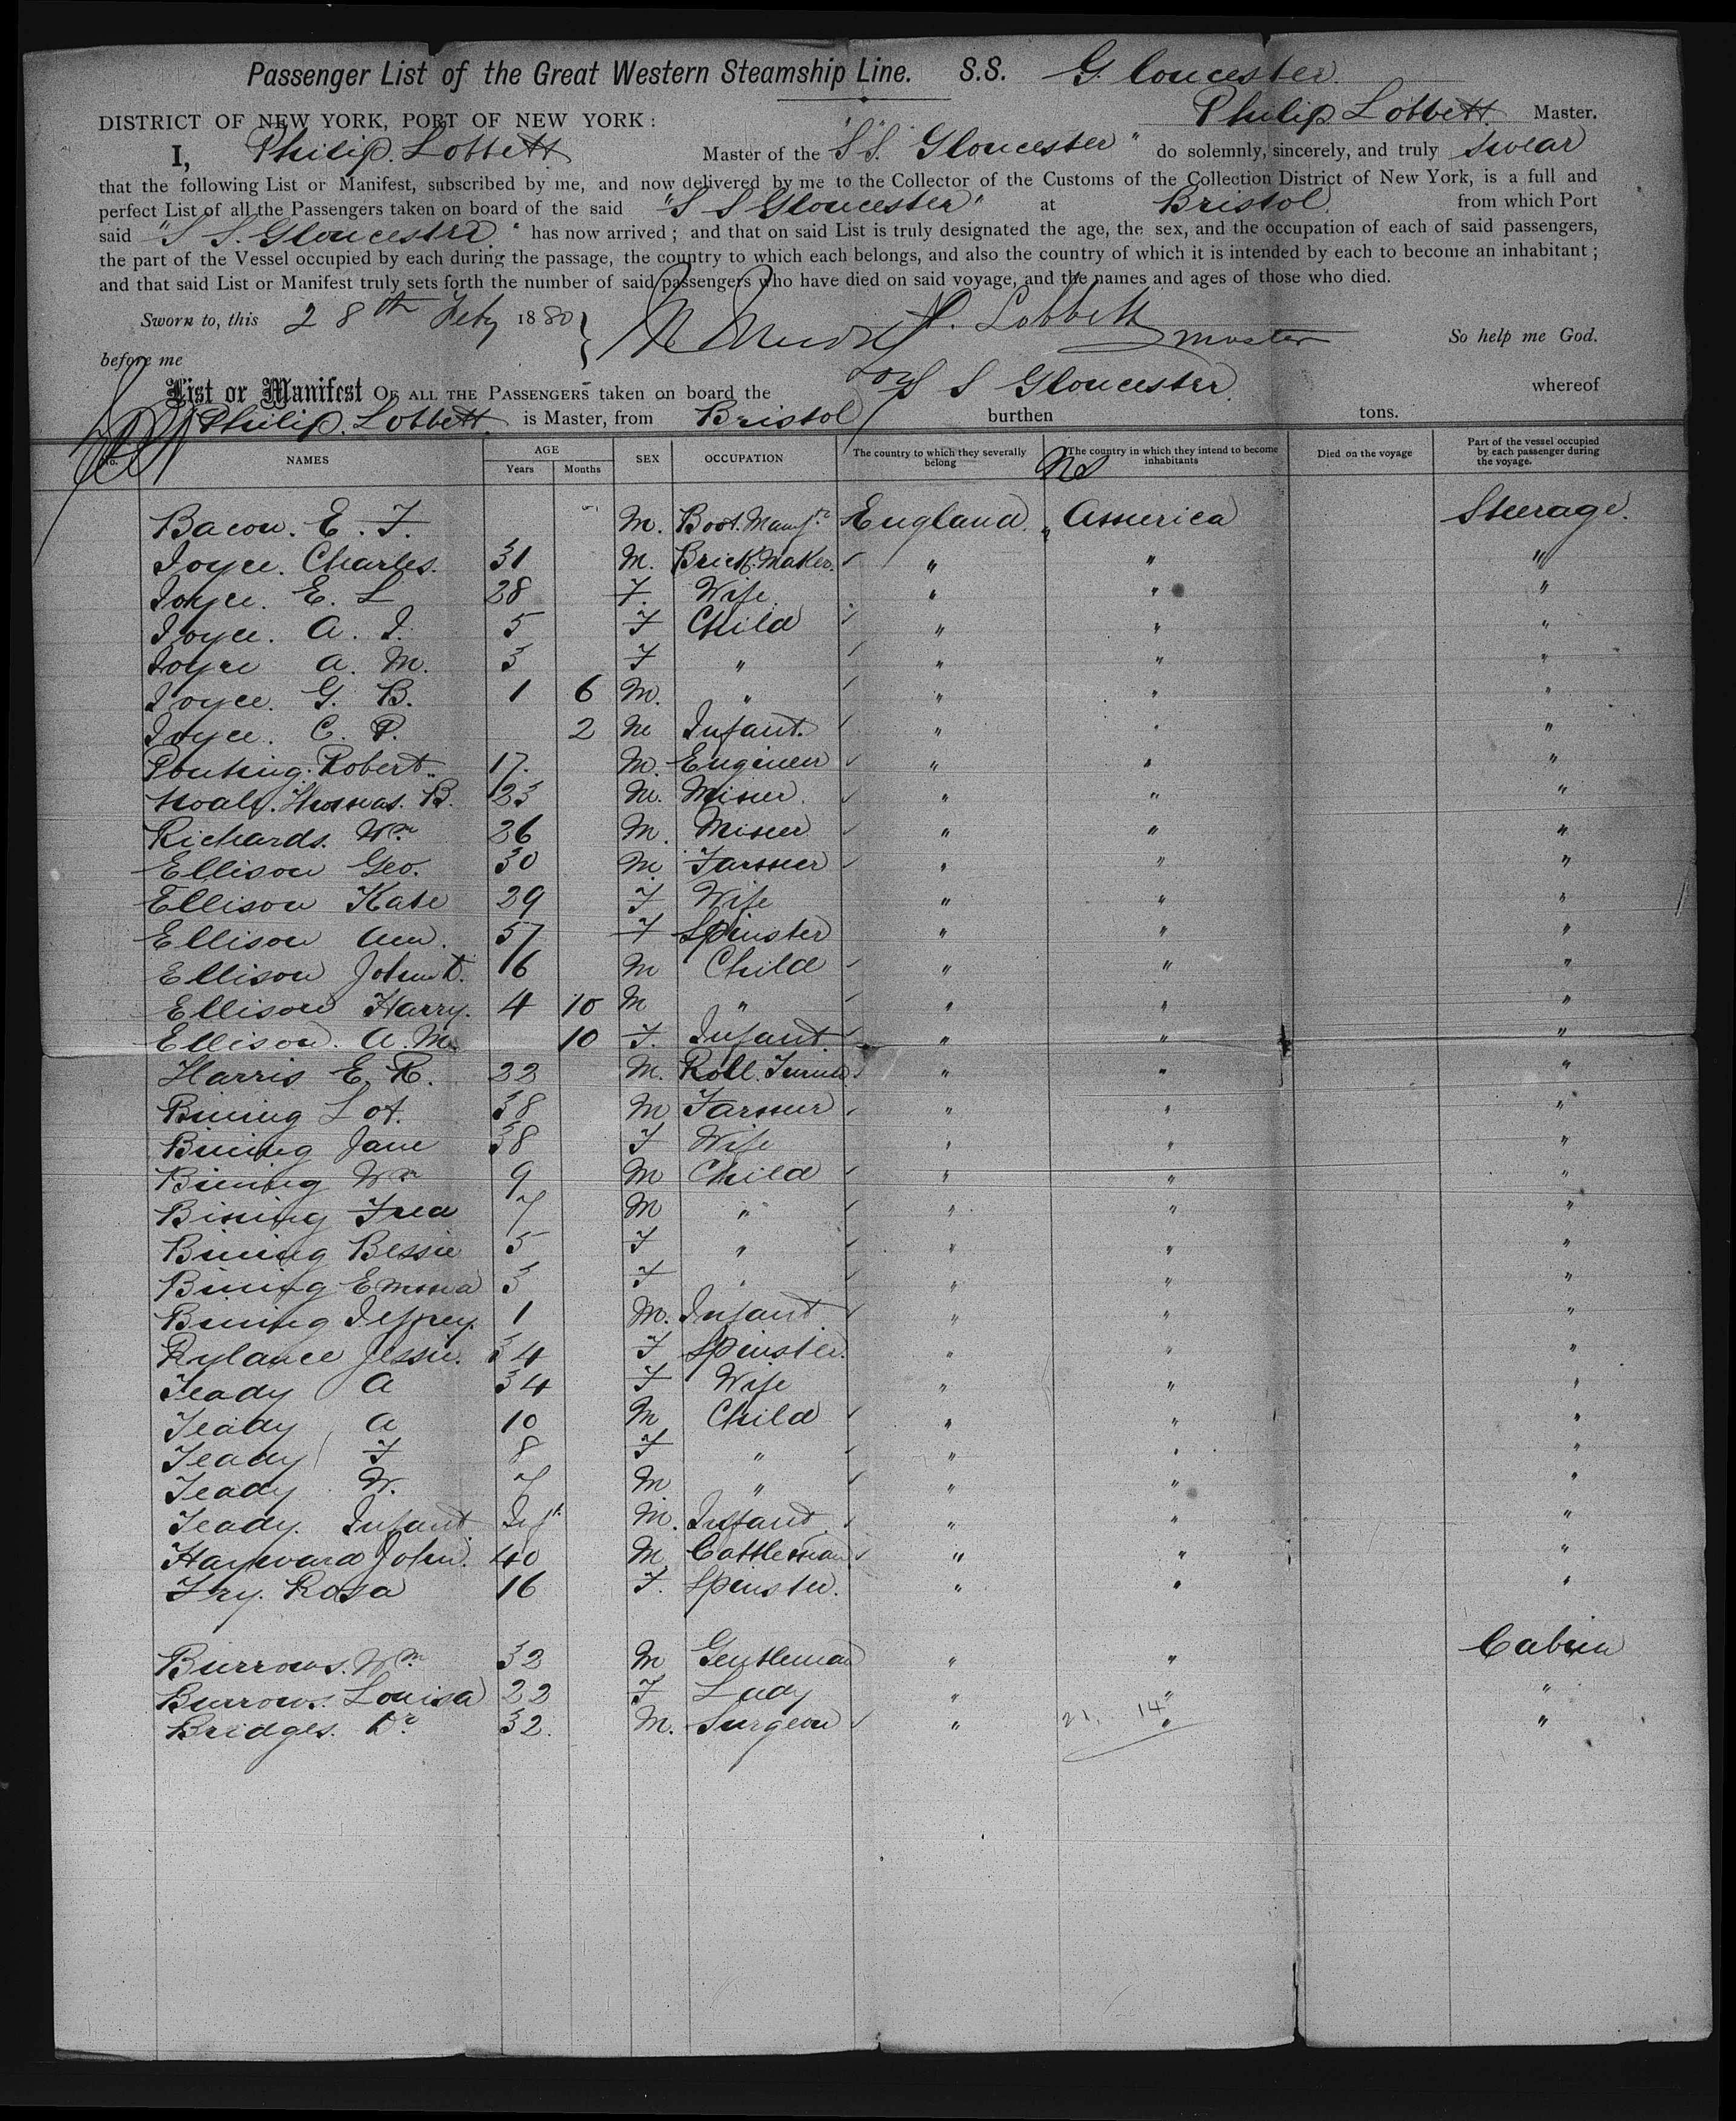 Passenger List of the Great Western Steamship Line. S.S. Gloucester
DISTRICT OF NEW YORK, PORT OF NEW YORK : Philip Lobbett Master.
I, Philip. Lobbett Master of the "S.S. Gloucester" do solemnly, sincerely, and truly swear
that the following List or Manifest, subscribed by me, and now delivered by me to the Collector of the Customs of the Collection District of New York, is a full and
perfect List of all the Passengers taken on board of the said "S S Gloucester" at Bristol from which Port
said "S S. Gloucester" has now arrived ; and that on said List is truly designated the age, the sex, and the occupation of each of said passengers,
the part of the Vessel occupied by each during the passage, the country to which each belongs, and also the country of which it is intended by each to become an inhabitant ;
and that said List or Manifest truly sets forth the number of said passengers who have died on said voyage, and the names and ages of those who died.
Sworn to, this 28th Feby 1880 P. Lobbett master So help me God.
before me
List or Manifest OF ALL THE PASSENGERS taken on board the S S Gloucester. whereof
Philip. Lobbett is Master, from Bristol burthen tons.
No. NAMES AGE Years Months SEX OCCUPATION The country to which they severally belong The country in which they intend to become inhabitants Died on the voyage Part of the vessel occupied by each passenger during the voyage.
Bacon. E. F. M. Boot. Manfr England America Steerage.
Joyce. Charles. 31 M. Brick. Maker. " " "
Joyce. E. L 28 F. Wife " " "
Joyce. A. J. 5 F Child " " "
Joyce A. M. 3 F " " " "
Joyce. G. B. 1 6 M. " " " "
Joyce. C. P. 2 M Infant. " " "
Ponting. Robert. 17. M. Engineer " " "
Thomas. B. 23 M. Miner. " " "
Richards. Wm 26 M. Miner " " "
Ellison Geo. 30 M. Farmer " " "
Ellison Kate 29 F Wife " " "
Ellison Ann. 57 F Spinster " " "
Ellison John 16 M Child " " "
Ellison Harry. 4 10 M " " " "
Ellison. A. M. 10 F. Infant " " "
Harris E. R. 22 M. Roll. Turner " " "
Bining Lot. 38 M Farmer " " "
Bining Jane 38 F Wife " " "
Bining Wm 9 M Child " " "
Bining Fred 7 M " " " "
Bining Bessie 5 F " " " "
Bining Emma 3 F " " " "
Bining 1 M. Infant " " "
Rylance Jessie. 34 F Spinster. " " "
Teady A 34 F Wife " " "
Teady A 10 M Child " " "
Teady F 8 F " " " "
Teady W. 7 M " " " "
Teady. Infant Inft M. Infant. " " "
Hayward John. 40 M Cattleman " " "
Fry. Rosa 16 F. Spinster. " " "
Burrows. Wm 32 M Gentleman " " Cabin
Burrows. Louisa 22 F Lady " " "
Bridges. Dr 32. M. Surgeon " " "
21. 14